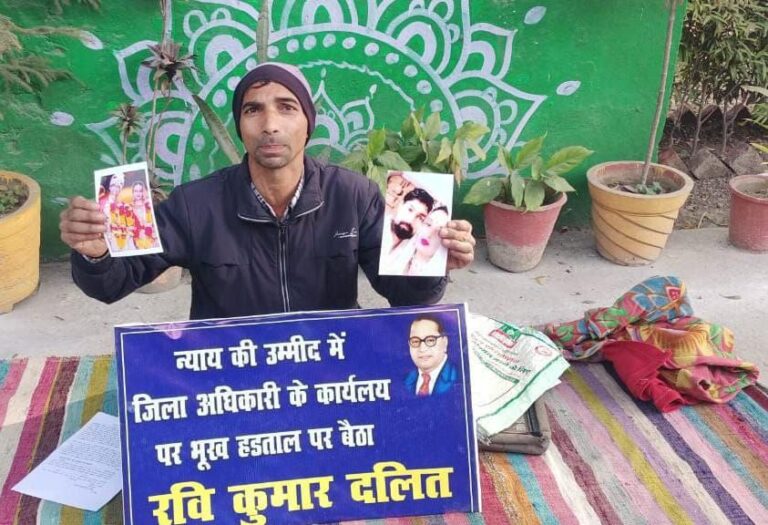 न्याय की उम्मीद में
जिला अधिकारी के कार्यलय
पर भूख हडताल पर बैठा
रवि कुमार दलित